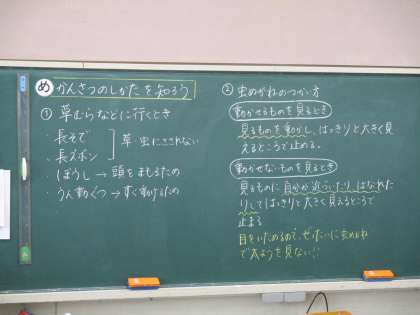 め かんさつのしかたを知ろう
① 草むらなどに行くとき
・長そで
・長ズボン
草・虫にさされない
・ぼうし→頭をまもるため
・うん動ぐつ→すぐ動けるため
② 虫めがねのつかい方
動かせるものを見るとき
見るものを動かし、はっきりと大きく見
えるところで止める。
動かせないものを見るとき
見るものに自分が近づいたり、はなれた
りしてはっきりと大きく見えるところで
止まる
目をいためるので、ぜったいに虫めがね
で太ようを見ない!!